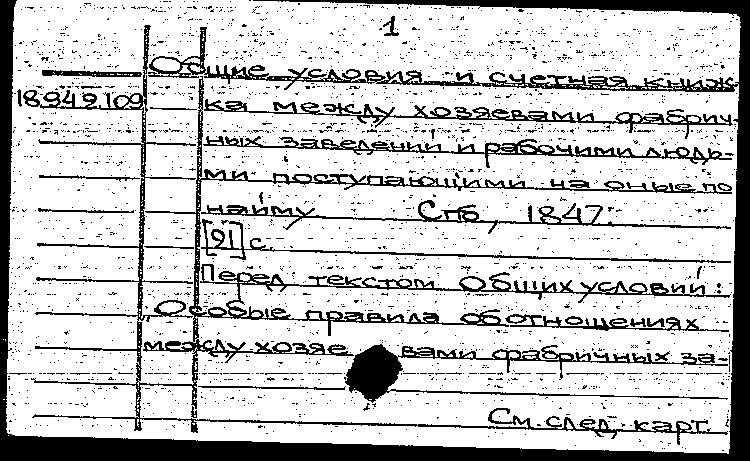 1
Общие условия и счетная книж-
18.949.109 ка между хозяевами фабрич-
ных заведений и рабочими людь-
ми поступающими на оные по
найму Спб, 1847.
[91] с
Перед текстом Общих условий:
„Особые правила об отношениях
между хозяевами фабричных за-
См. след. карт.